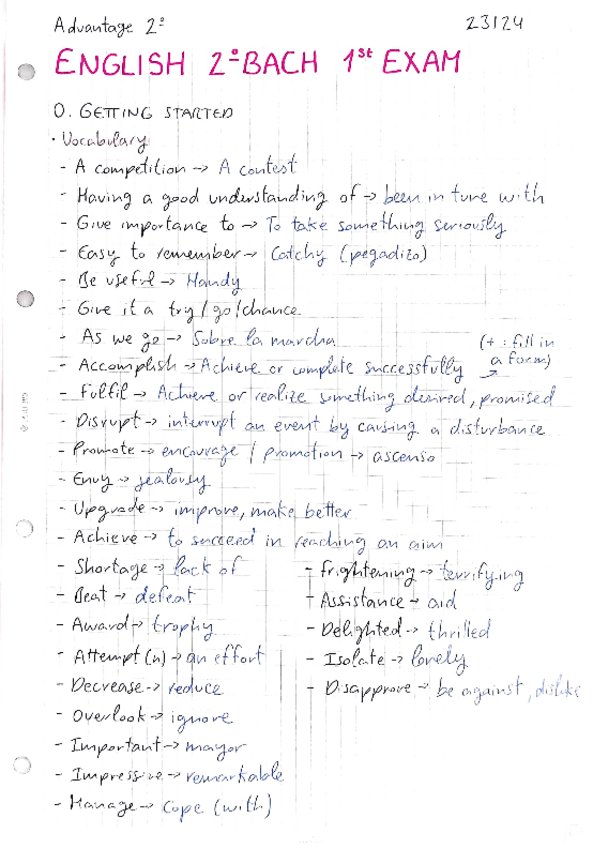 Advantage 2º 23/24
ENGLISH 2ºBACH 1st EXAM
0. GETTING STARTED
· Vocabulary
- A competition -> A contest
- Having a good understanding of -> been in tune with
- Give importance to -> To take something seriously
- Easy to remember -> Catchy (pegadizo)
- Be useful -> Handy
- Give it a try/go/chance
- As we go -> Sobre la marcha
(+ : fill in a form)
- Accomplish -> Achieve or complete successfully
- Fulfil -> Achieve or realize something desired, promised
- Disrupt -> interrupt an event by causing a disturbance
- Promote -> encourage / promotion -> ascenso
- Envy -> jealousy
- Upgrade -> improve, make better
- Achieve -> to succeed in reaching an aim
- Shortage -> lack of
- Beat -> defeat
- Award -> trophy
- Attempt (n) -> an effort
- Decrease -> reduce
- Overlook -> ignore
- Important -> mayor
- Impressive -> remarkable
- Manage -> Cope (with)
- Frightening -> terrifying
- Assistance - aid
- Delighted -> thrilled
- Isolate -> lonely
- Disapprove -> be against, dislike